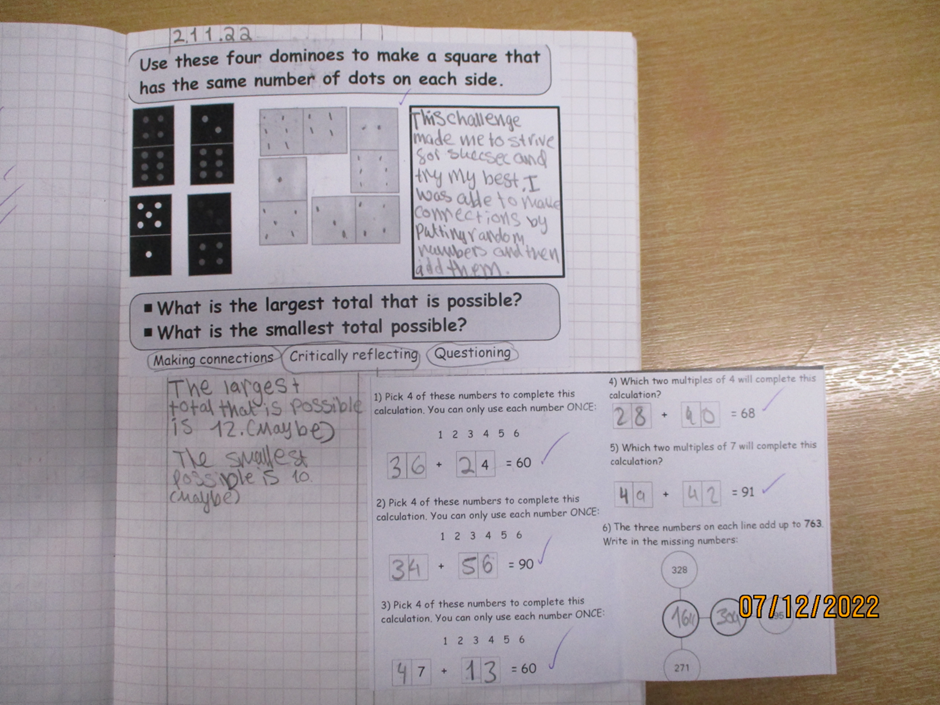 2.11.22
Use these four dominoes to make a square that
has the same number of dots on each side.
This challenge
made me to strive
for
and
try my best. I
was able to make
connections by
putting random
numbers and then
add them.
■ What is the largest total that is possible?
■ What is the smallest total possible?
Making connections Critically reflecting Questioning
The largest
total that is possible
is 12. (maybe)
The smallest
possible is 10
(maybe)
1) Pick 4 of these numbers to complete this
calculation. You can only use each number ONCE:
1 2 3 4 5 6
36 + 24 = 60
2) Pick 4 of these numbers to complete this
calculation. You can only use each number ONCE:
1 2 3 4 5 6
34 + 56 = 90
3) Pick 4 of these numbers to complete this
calculation. You can only use each number ONCE:
1 2 3 4 5 6
47 + 13 = 60
4) Which two multiples of 4 will complete this
calculation?
28 + 40 = 68
5) Which two multiples of 7 will complete this
calculation?
49 + 42 = 91
6) The three numbers on each line add up to 763.
Write in the missing numbers:
328
164
271
07/12/2022